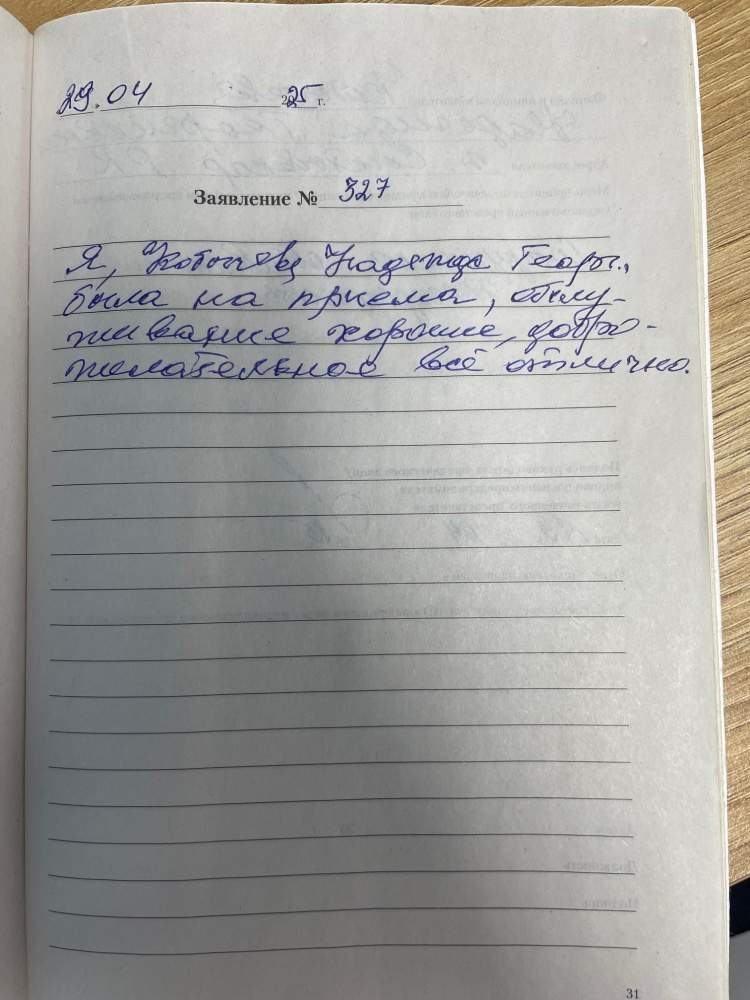 29.04 2025 г.
Заявление № 327
Я, Надежда Георг.,
была на приёма, обслу-
живание хорошие, добро-
желательное всё отлично.
31